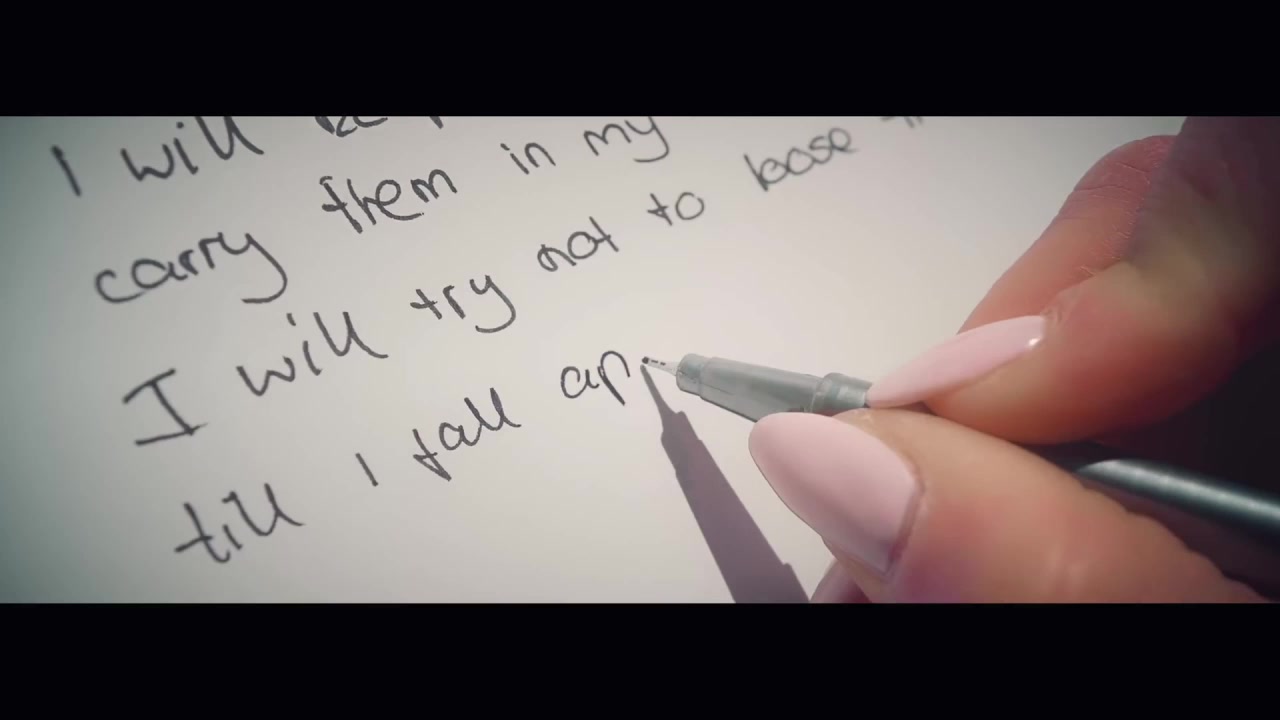 I will
carry them in my
I will try not to loose
till I fall ap